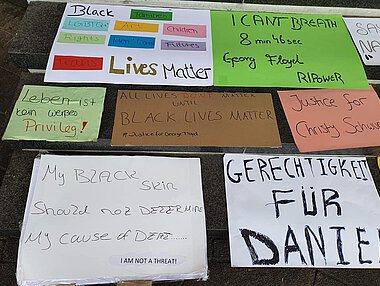 Black
Women
LGBTQ+
Art
Children
Rights
Futures
Trans
Lives Matter
I CANT BREATH
8 min 46 sec
Georg Floyd
RIPOWER
SA
NA
Leben ist
kein weißes
Privileg!
ALL LIVES DON'T MATTER
UNTIL
BLACK LIVES MATTER
#Justice for George Floyd
Justice for
Christy Schwun
My BLACK
SKIN
Should not DETERMINE
My cause of DEAT......
I AM NOT A THREAT!
GERECHTIGKEIT
FÜR
DANIE